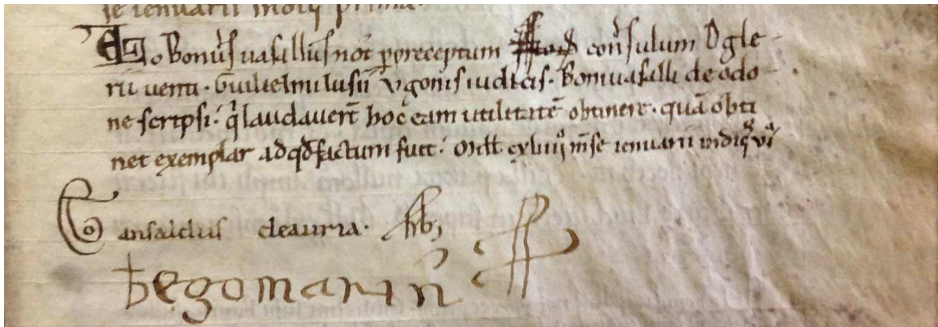 se ienuarii indiq̃ prima.
Ego Bonus uasallus not̃ p̲preceptum consulum Ogle
rii uenti. Guilielmi lusii ugonis iudicis. Bonuasalli de odo
ne scripsi. q̃ laudauerт̃ hoc eam utilitatẽ obtinere. quã obti
net exemplar ad qd̃ factum fuit. mill̃ cxlviiiiͦ. m̃se ienuarii indiq̃ viͣ
ansaldus de auria. ss
ego marin